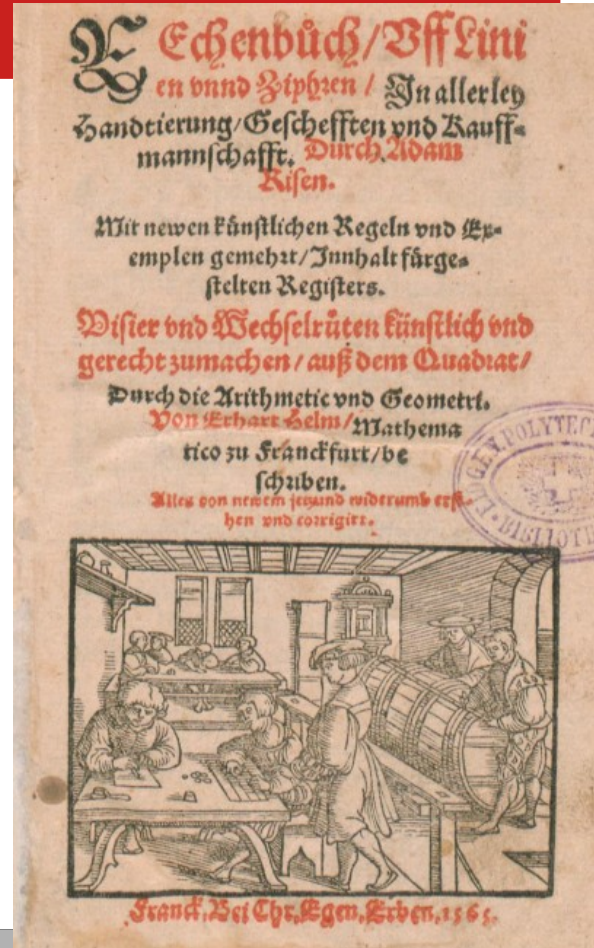 REchenbuͦch/Vff Lini
en vnnd Ziphren / In allerley
Handtierung/Geschefften vnd Kauff⸗
mannschafft. Durch Adam
Risen.
Mit newen künstlichen Regeln vnd Ex⸗
emplen gemehrt/Innhalt fürge⸗
stelten Registers.
Visier vnd Wechselrůten künstlich vnd
gerecht zumachen/auß dem Quadrat/
Durch die Arithmetic vnd Geometri.
Von Erhart Helm/Mathema
tico zu Franckfurt/be
schriben.
Alles von newem jetzund widerumb erse⸗
hen vnd corrigirt.
POLYTEC
BIBLIOT
Franck, Bei Chr. Egen. Erben. 1565.